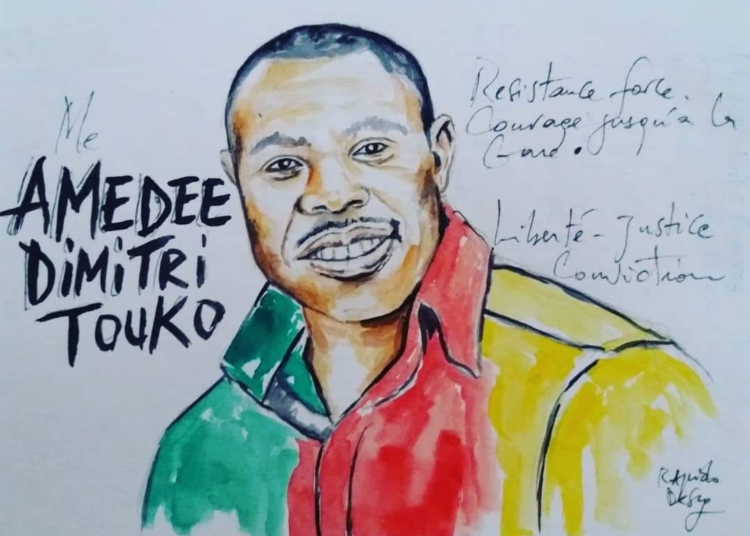 Me
AMEDEE
DIMITRI
TOUKO
Resistance force.
Courage jusqu'à la
Liberté - Justice
Conviction